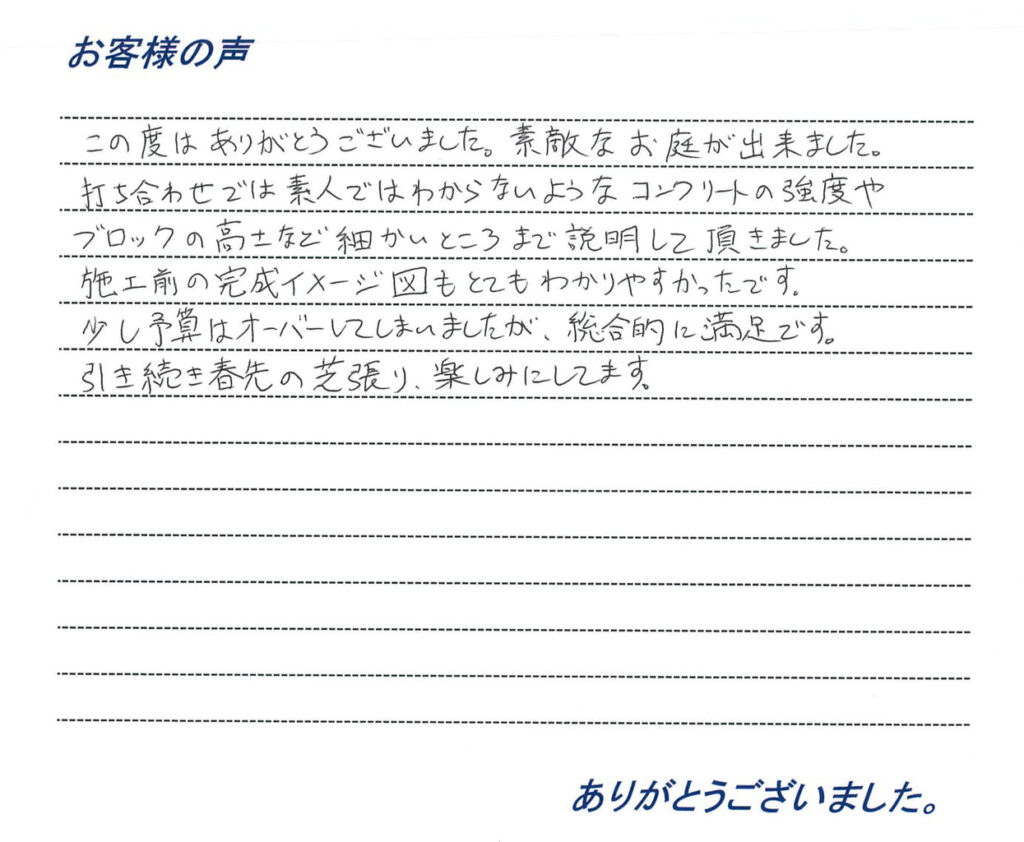 お客様の声
この度はありがとうございました。素敵なお庭が出来ました。
打ち合わせでは素人ではわからないようなコンクリートの強度や
ブロックの高さなど細かいところまで説明して頂きました。
施工前の完成イメージ図もとてもわかりやすかったです。
少し予算はオーバーしてしまいましたが、総合的に満足です。
引き続き春先の芝張り、楽しみにしてます。
ありがとうございました。